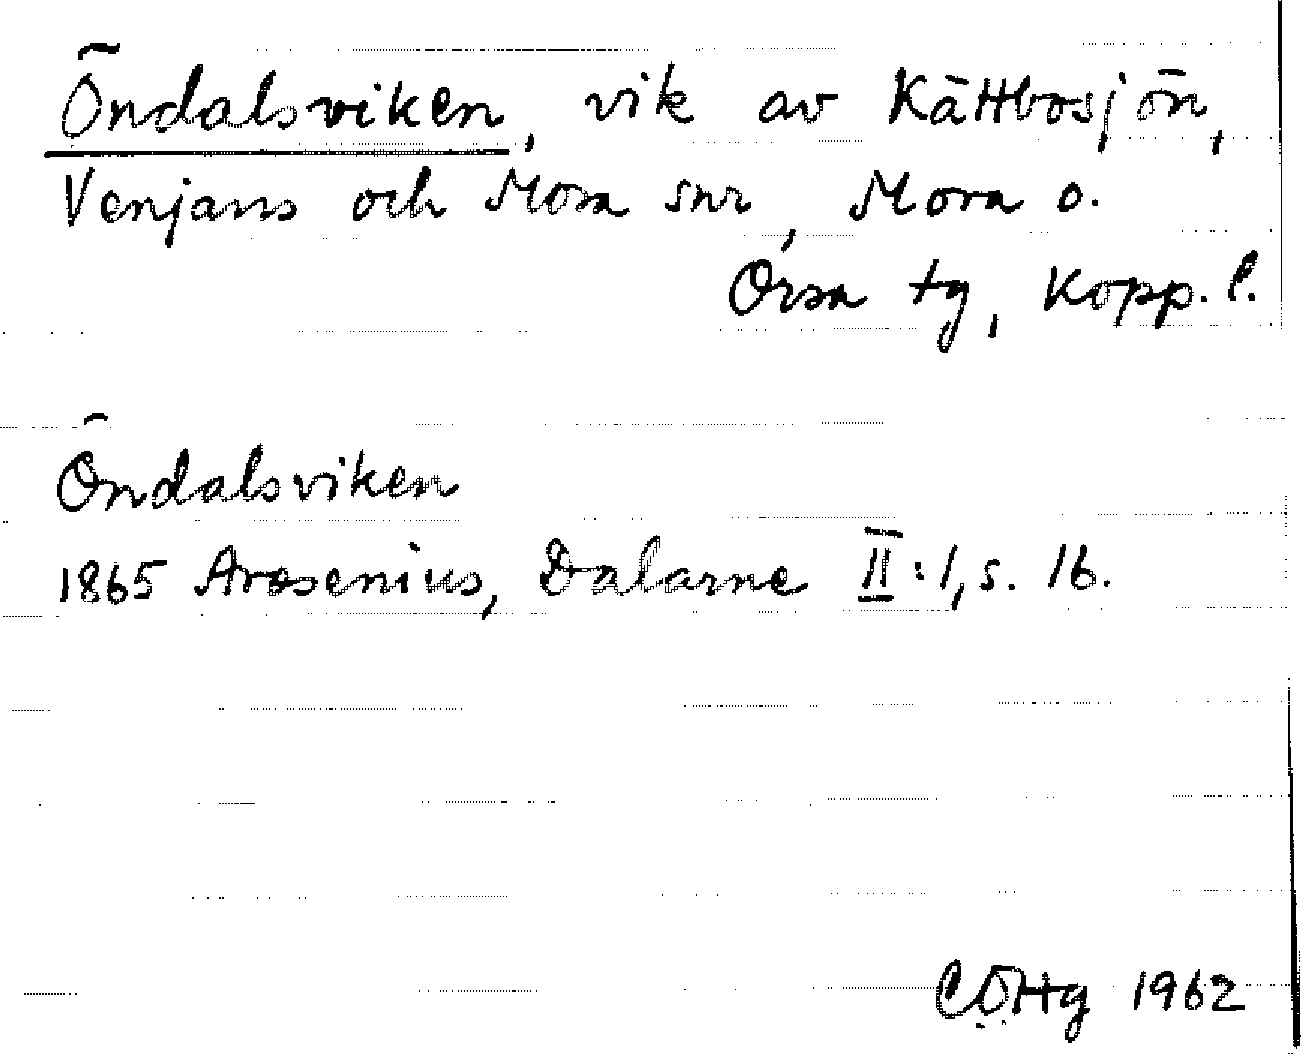 Öndalsviken, vik av Kättbosjön,
Venjans och Mora snr, Mora o.
Orsa tg, Kopp. l.
Öndalsviken
1865 Arosenius, Dalarne II:1, s. 16.
CÖHg 1962